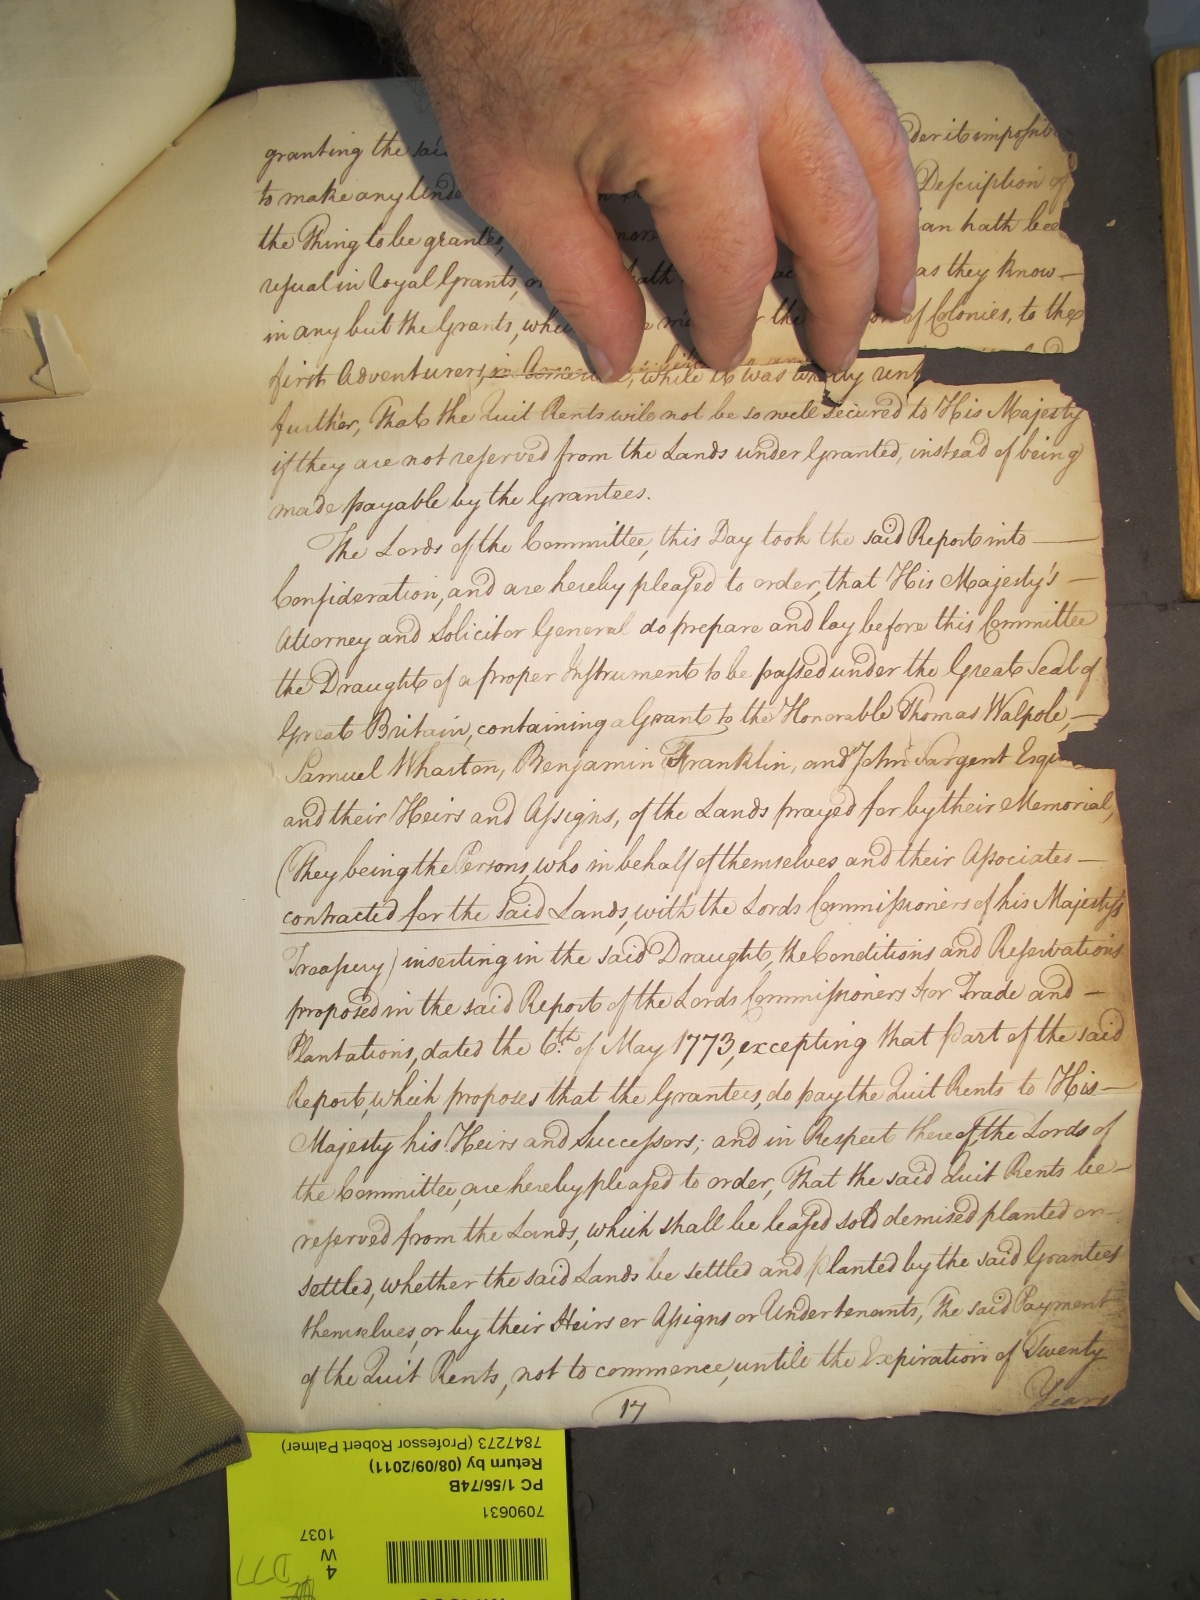 granting the said der it impossib
to make any Unde Description of
the Thing to be granted, more an hath bee
usual in Royal Grants, or hath as they know
in any but the Grants, whi the of Colonies, to the
first Adventurers, in America, while it was wholly
further, That the Quit Rents will not be so well secured to His Majesty
if they are not reserved from the Lands under Granted, instead of being
made payable by the Grantees.
The Lords of the Committee, this Day took the said Report into
Consideration, and are hereby pleased to order, that His Majesty's
Attorney and Solicitor General do prepare and lay before this Committee
the Draught of a proper Instrument to be passed under the Great Seal of
Great Britain, containing a Grant to the Honorable Thomas Walpole,
Samuel Wharton, Benjamin Franklin, and John Sargent Esqr
and their Heirs and Assigns, of the Lands prayed for by their Memorial,
(They being the Persons, who in behalf of themselves and their Associates
contracted for the said Lands, with the Lords Commissioners of his Majesty's
Treasury) inserting in the said Draught, the Conditions and Reservations
proposed in the said Report of the Lords Commissioners for Trade and
Plantations, dated the 6th of May 1773, excepting that part of the said
Report, which proposes that the Grantees, do pay the Quit Rents to His
Majesty his Heirs and Successors; and in Respect thereof, the Lords of
the Committee, are hereby pleased to order, That the said Quit Rents be
reserved from the Lands, which shall be leased sold demised planted or
settled, whether the said Lands be settled and planted by the said Grantees
themselves, or by their Heirs or Assigns or Undertenants, the said Payment
of the Quit Rents, not to commence, untill the Expiration of Twenty
Years
17
7847273 (Professor Robert Palmer)
Return by (08/09/2011)
PC 1/56/74B
7090631
1037
W
4
D77